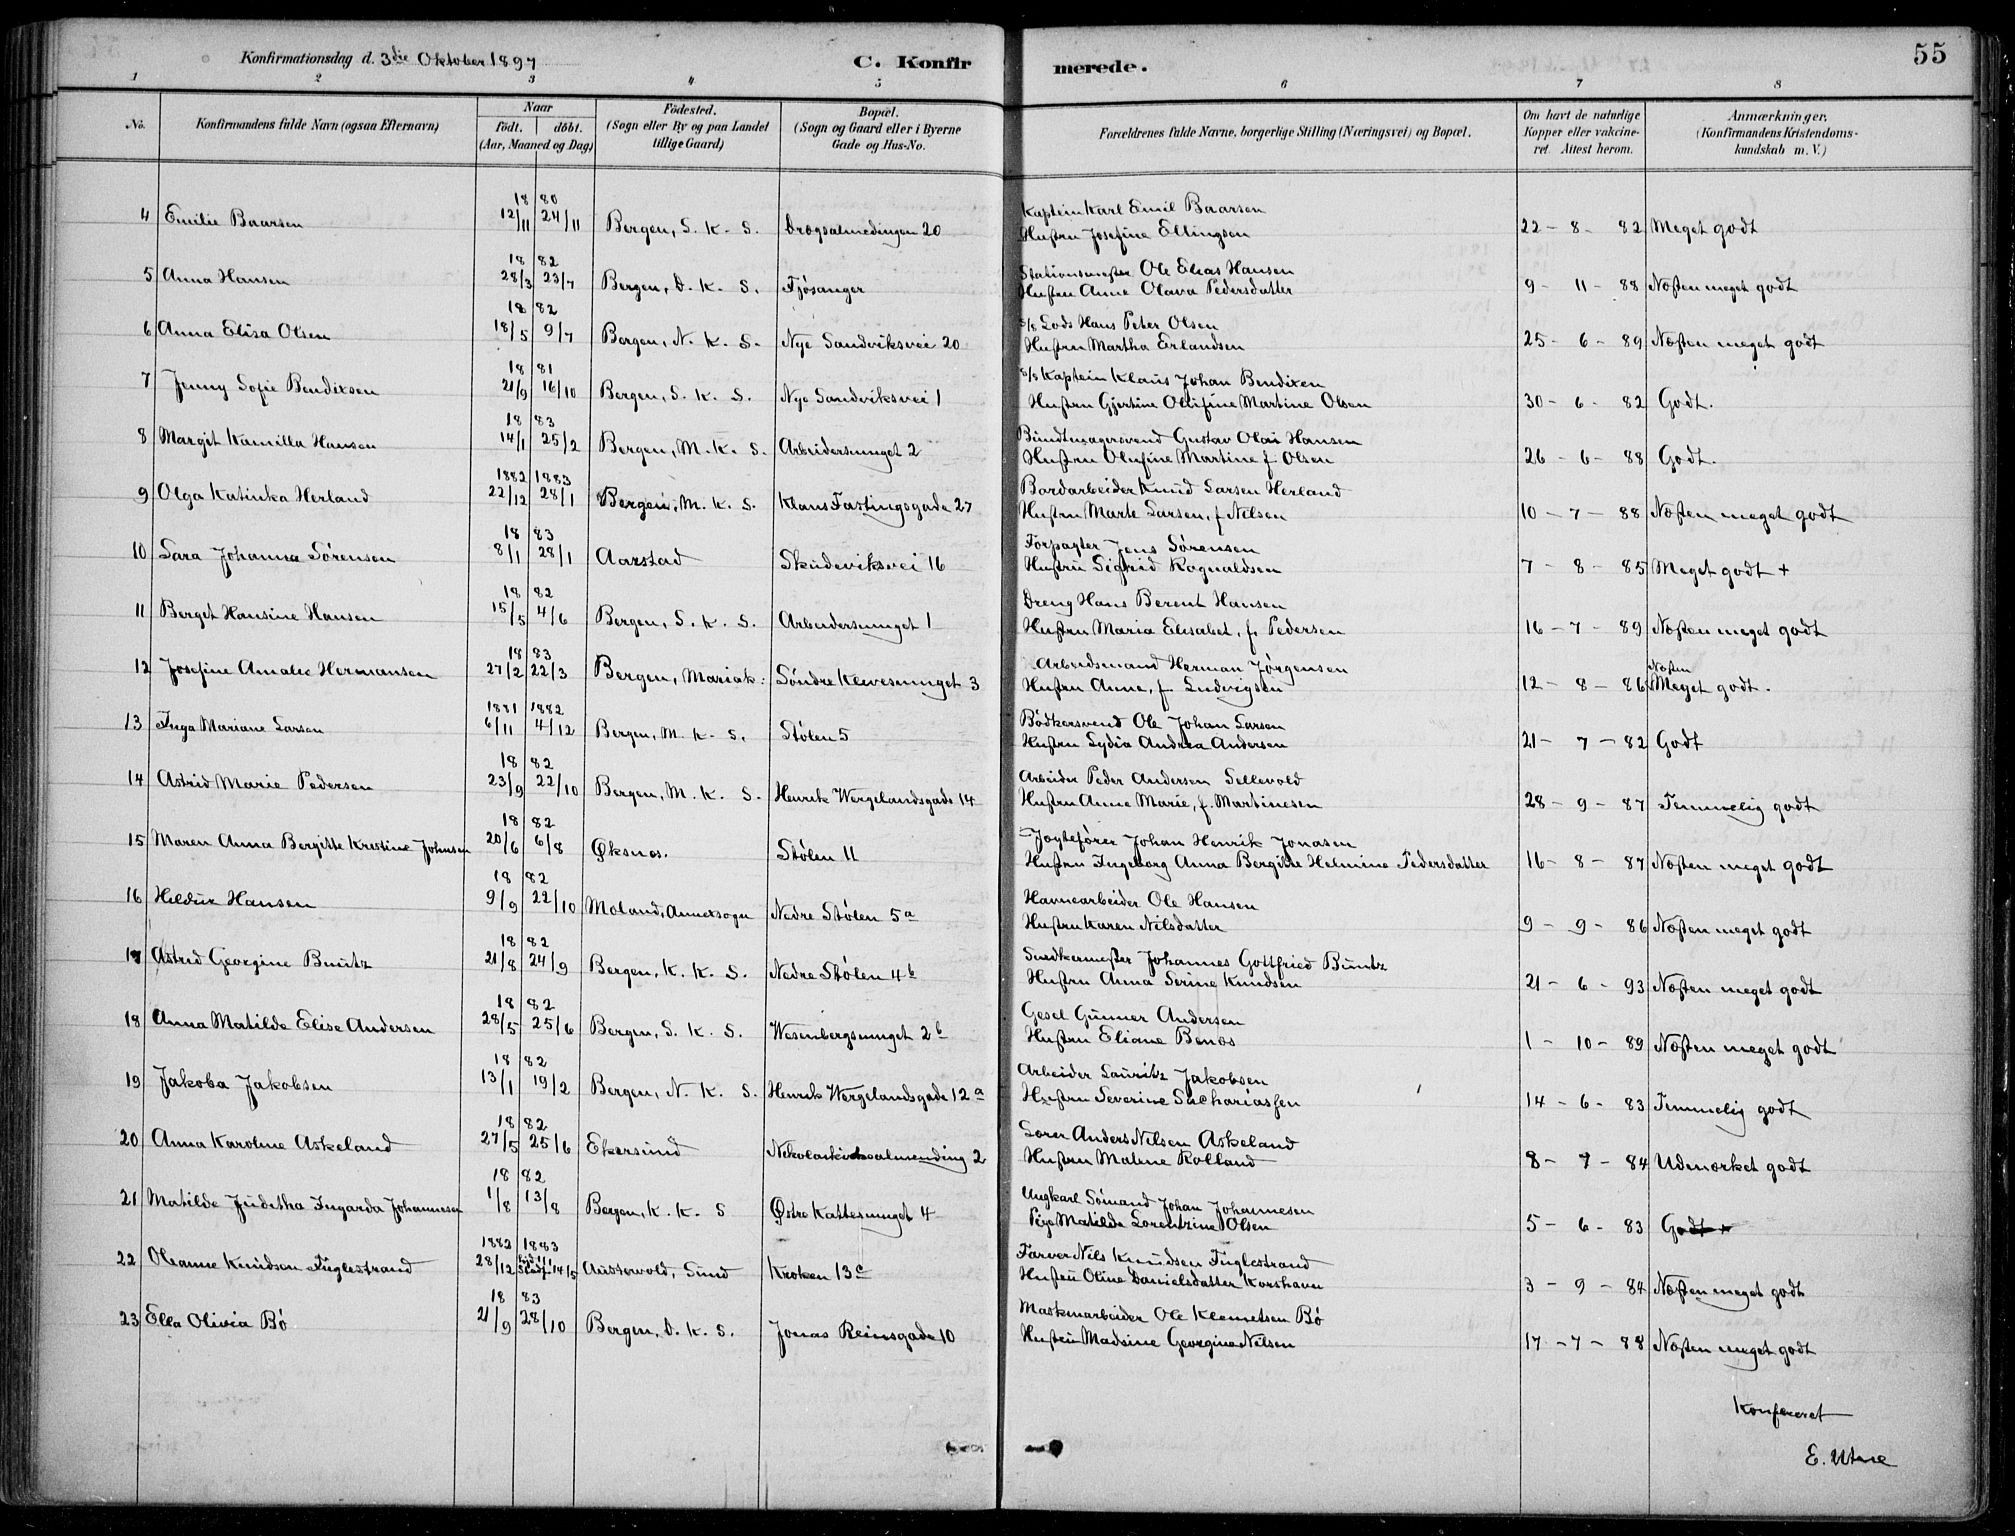 Konfirmationsdag d. 3die Oktober 1897 C. Konfirmerede. 55
1 2 3 4 5 6 7 8
No. Konfirmandens fulde Navn (ogsaa Efternavn) Naar födt. döbt. (Aar, Maaned og Dag) Födested. (Sogn eller By og paa Landet tillige Gaard) Bopæl. (Sogn og Gaard eller i Byerne Gade og Hus-No. Forældrenes fulde Navne, borgerlige Stilling (Næringsvei) og Bopæl. Om havt de naturlige Kopper eller vakcineret. Attest herom. Anmærkninger. (Konfirmandens Kristendomskundskab m. V.)
18 80
4 Emilie Baarsen 12/11 24/11 Bergen, S. K. S. Drægsalmedingen 20 Kaptein Karl Emil Baarsen
Hustru Josefine Ellingsen 22 - 8 - 82 Meget godt
18 82
5 Anna Hansen 28/3 23/7 Bergen, D. K. S. Fjøsanger Stationsmester Ole Elias Hansen
Hustru Anne Olava Pedersdatter 9 - 11 - 88 Næsten meget godt
18 82
6 Anna Elisa Olsen 18/5 9/7 Bergen, N. K. S. Nye Sandviksvei 20 Lods Hans Peter Olsen
Hustru Martha Erlandsen 25 - 6 - 89 Næsten meget godt
18 81
7 Jenny Sofie Bendixsen 21/9 16/10 Bergen, S. K. S. Nye Sandviksvei 1 Kaptein Klaus Johan Bendixen
Hustru Gjertine Ollifine Martine Olsen 30 - 6 - 82 Godt.
18 83
8 Margit Kamilla Hansen 14/1 25/2 Bergen, M. K. S. Arbeidersmuget 2 Bundtmagersvend Gustav Olai Hansen
Hustru Olufine Martine f. Olsen 26 - 6 - 88 Godt.
1882 1883
9 Olga Katinka Herland 22/12 28/1 Bergen, M. K. S. Klaus Fastingsgade 27 Bordarbeider Knud Larsen Herland
Hustru Marte Larsen, f. Nilsen 10 - 7 - 88 Næsten meget godt
18 83
10 Sara Johanna Sörensen 8/1 28/1 Aarstad Skudeviksvei 16 Forpagter Jens Sørensen
Hustru Sigrid Ragnaldsen 7 - 8 - 85 Meget godt +
18 82
11 Berget Hansine Hansen 15/5 4/6 Bergen, S. K. S. Arbeidersmuget 1 Dreng Hans Berent Hansen
Hustru Maria Elisabet, f. Pedersen 16 - 7 - 89 Næsten meget godt
18 83
12 Josefine Amalie Hermansen 27/2 22/3 Bergen, Mariak: Söndre Klevesmuget 3 Arbeidsmand Herman Jørgensen
Hustru Anne, f. Ludvigsen 12 - 8 - 86 Næsten Meget godt.
1881 1882
13 Inga Mariane Larsen 6/11 4/12 Bergen, M. K. S. Stølen 5 Bödkersvend Ole Johan Larsen
Hustru Lydia Andrea Andersen 21 - 7 - 82 Godt
18 82
14 Astrid Marie Pedersen 23/9 22/10 Bergen, M. K. S. Henrik Wergelandsgade 14 Arbeider Peder Andersen Sellevold
Hustru Anne Marie, f. Martinesen 28 - 9 - 87 Temmelig godt
18 82
15 Maren Anna Bergitte Kristine Johnsen 20/6 6/8 Øksnes. Stølen 11 Jøgtefører Johan Henrik Jonasen
Hustru Ingeborg Anna Bergitte Helmine Pedersdatter 16 - 8 - 87 Næsten meget godt
18 82
16 Hildur Hansen 9/9 22/10 Moland, Annexsogn Nedre Stølen 5a Havnearbeider Ole Hansen
Hustru Karen Nilsdatter 9 - 9 - 86 Næsten meget godt
18 82
17 Astrid Georgine Buntz 21/8 24/9 Bergen, K. K. S. Nedre Stølen 4b Snedkermester Johannes Gottfried Buntz
Hustru Anna Serine Knudsen 21 - 6 - 93 Næsten meget godt
18 82
18 Anna Matilde Elise Andersen 28/5 25/6 Bergen, S. K. S. Wesenbergsmuget 2b Gesel Gunner Andersen
Hustru Eliane Benæs 1 - 10 - 89 Næsten meget godt
18 82
19 Jakoba Jakobsen 13/1 19/2 Bergen, N. K. S. Henrik Wergelandsgade 12a Arbeider Lauritz Jakobsen
Hustru Severine Sachariassen 14 - 6 - 83 Temmelig godt
18 82
20 Anna Karoline Askeland 27/5 25/6 Ekersund Nikolaikirkealmending 2 Lorer Anders Nilsen Askeland
Hustru Malene Rolland 8 - 7 - 84 Udmærket godt
18 82
21 Matilde Juditha Ingarda Johannesen 1/8 13/8 Bergen, K. K. S Østre Kattesmuget 4 Ungkarl Sömand Johan Johannesen
Pige Matilde Lorentzine Olsen 5 - 6 - 83 Godt +
1882 1883
22 Oleanne Knudsen Fuglestrand 28/12 14/5 Austevold, Sund Kroken 13c Farver Nils Knudsen Fuglestrand
Hustru Oline Danielsdatter Korshavn 3 - 9 - 84 Næsten meget godt
18 83
23 Ella Olivia Bö 21/9 28/10 Bergen, D. K. S. Jonas Reinsgade 10 Maskinarbeider Ole Klemetsen Bö
Hustru Madsine Georgine Nilsen 17 - 7 - 88 Næsten meget godt
Konfereret
E. Utne